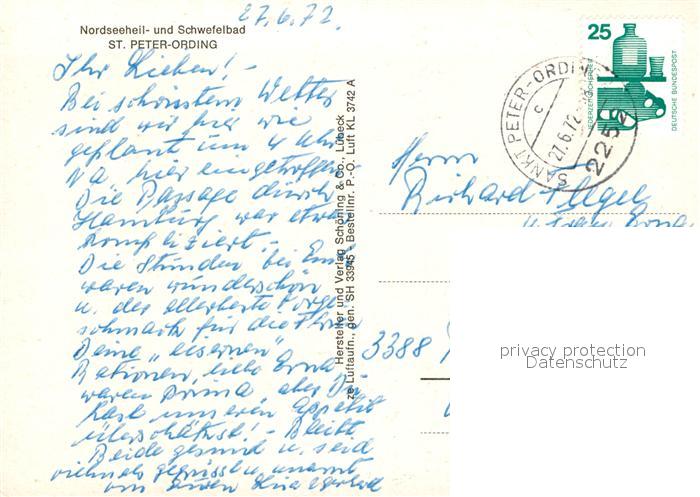 27.6.72.
Nordseeheil- und Schwefelbad
ST. PETER-ORDING
Ihr Lieben! -
Bei schönstem Wetter
sind wir hier wie
geplant um 4 Uhr
hier eingetroffen
Die Passage durch
Hamburg war etwas
kompliziert. -
Die Stunden bei
waren wunderschön
u. der allerbeste Vorge-
schmack für die
Deine „eisernen"
Rationen, liebe Erna
waren prima, aber Du
hast unseren Appetit
überschätzt! - Bleibt
Beide gesund u. seid
vielmals gegrüsst u. umarmt
von Euren
Hersteller und Verlag Schöning & Co., Lübeck
ze Luftaufn., gen. SH 33945 - Bestellnr. P.-O. Luft KL 3742 A
25
DEUTSCHE BUNDESPOST
SANKT PETER-ORDING
c
27.6.72
2252
Herrn
Richard
u. Frau Erna
3388
privacy protection
Datenschutz